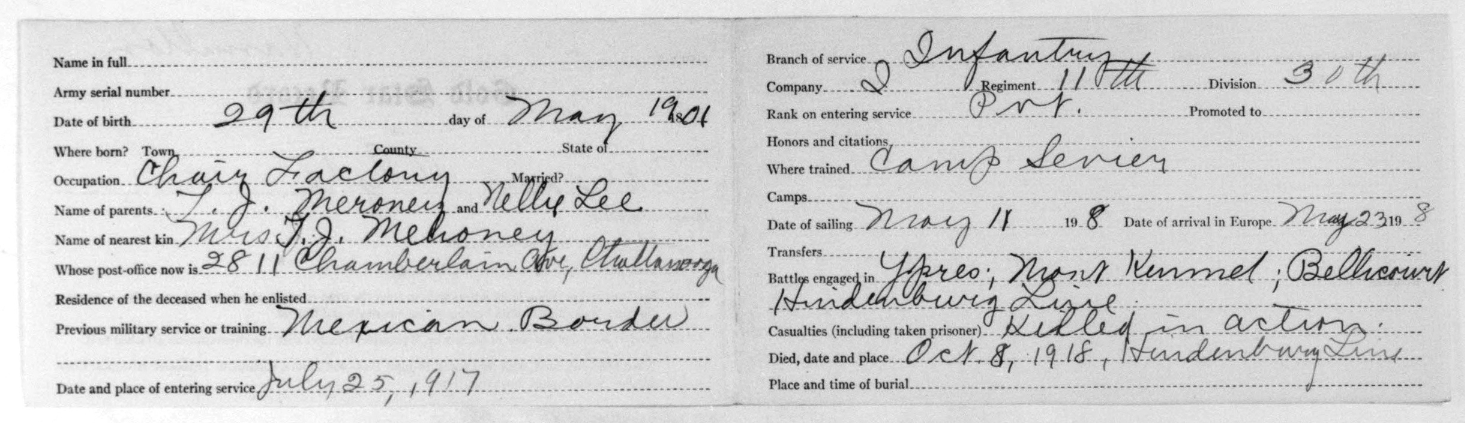 Name in full
Army serial number
Date of birth 29th day of May 1901
Where born? Town County State of
Occupation Chair Factory Married?
Name of parents T. J. Meroney and Nellie Lee
Name of nearest kin Mrs T. J. Meroney
Whose post-office now is 2811 Chamberlain Ave, Chattanooga
Residence of the deceased when he enlisted
Previous military service or training Mexican Border
Date and place of entering service July 25, 1917
Branch of service Infantry
Company Regiment 11th Division 30th
Rank on entering service Pvt. Promoted to
Honors and citations
Where trained Camp Sevier
Camps
Date of sailing May 11 19 8 Date of arrival in Europe May 23 19 8
Transfers
Battles engaged in Ypres; Mont Kemmel; Bellicourt
Hindenburg Line
Casualties (including taken prisoner) Killed in action.
Died, date and place Oct. 8, 1918, Hindenburg Line
Place and time of burial